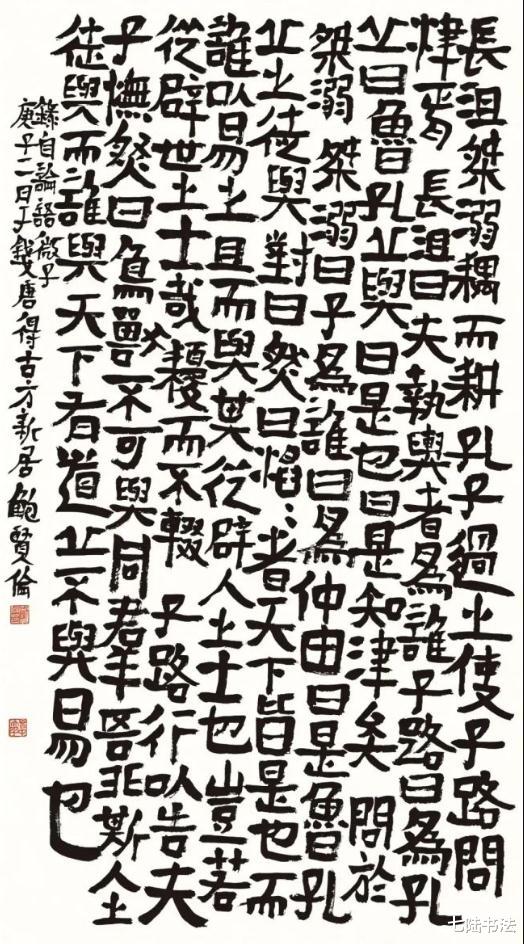 長沮桀溺耦而耕孔子過之使子路問
津焉 長沮曰夫執輿者爲誰子路曰爲孔
丘曰魯孔丘與曰是也曰是知津矣 問於
桀溺 桀溺曰子爲誰曰爲仲由曰是魯孔
丘之徒與 對曰然曰滔:者天下皆是也而
誰以易之且而與其從辟人之士也豈若
從辟世之士哉耰而不輟 子路行以告夫
子憮然曰鳥獸不可與同羣吾非斯人之
徒與而誰與天下有道丘不與易也
錄自論語微子
庚子二日于錢唐得古方新居 鮑賢倫
七陆书法